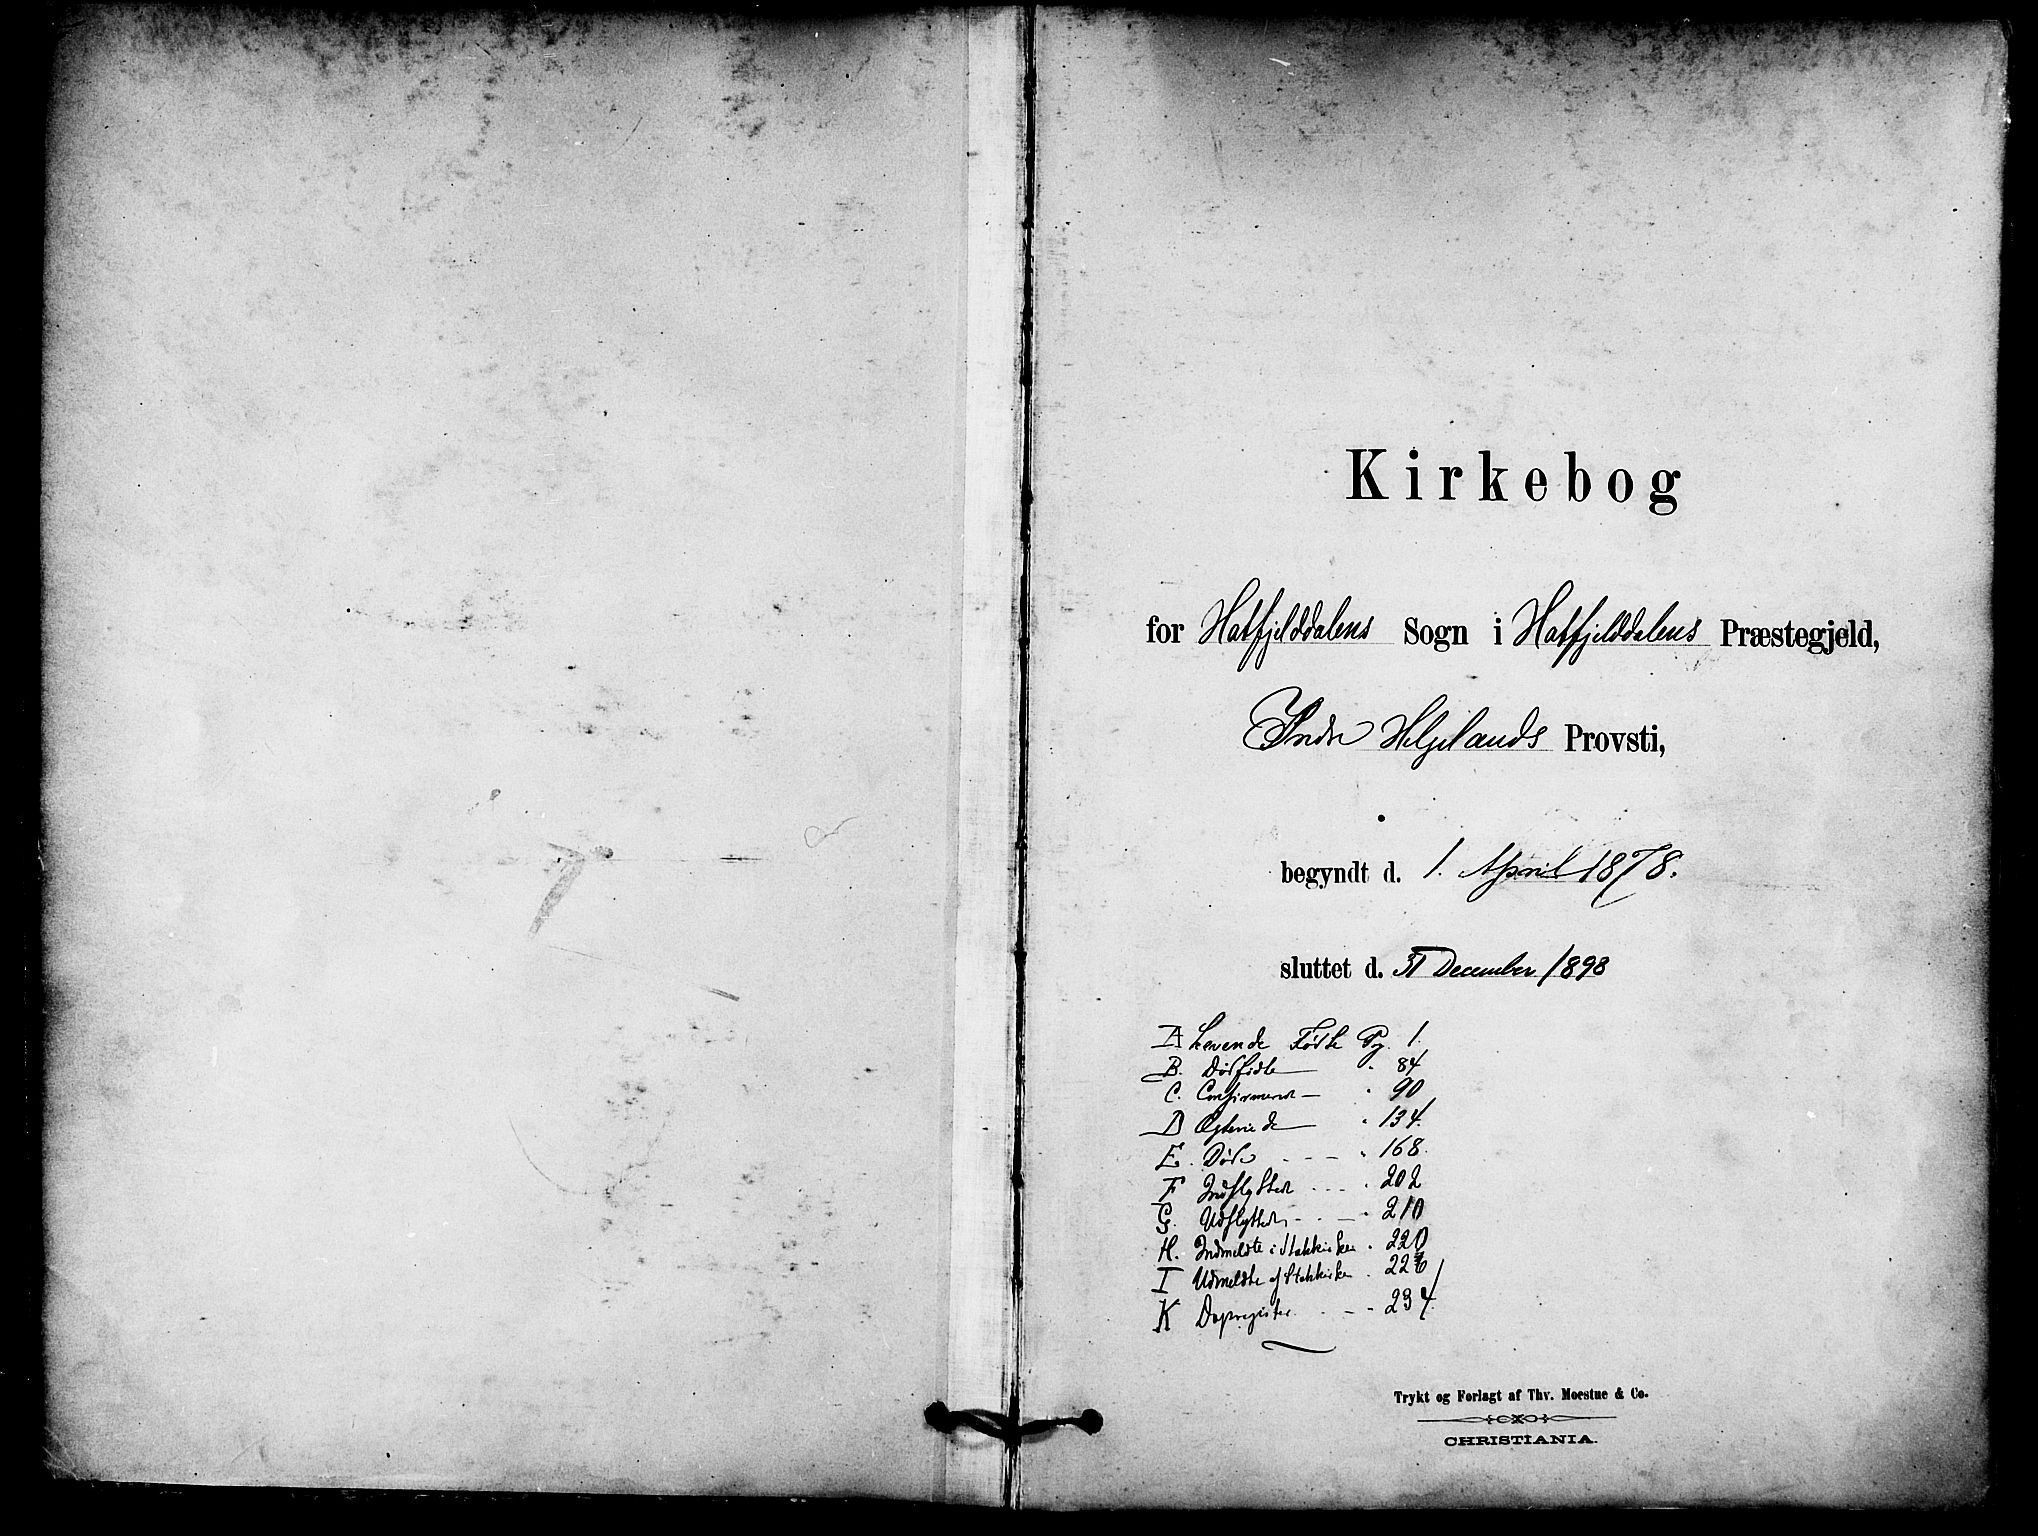 Kirkebog
for Hatfjelddalens Sogn i Hatfjelddalens Præstegjeld,
Indre Helgelands Provsti,
begyndt d. 1. April 1878.
sluttet d. 31 December 1898
A Levende Fødte Pg. 1.
B. Dødfødte — " 84
C. Confirmered — " 90
D Ægteviede — " 134.
E. Døde - - - " 168.
F Indflyttede - - - " 202
G. Udflyttede - - - " 210
H. Indmeldte i Statskirken " 220
I Udmeldte af Statskirken " 226
K Dagsregister - - - 234.
Trykt og Forlagt af Thv. Moestue & Co.
CHRISTIANIA.